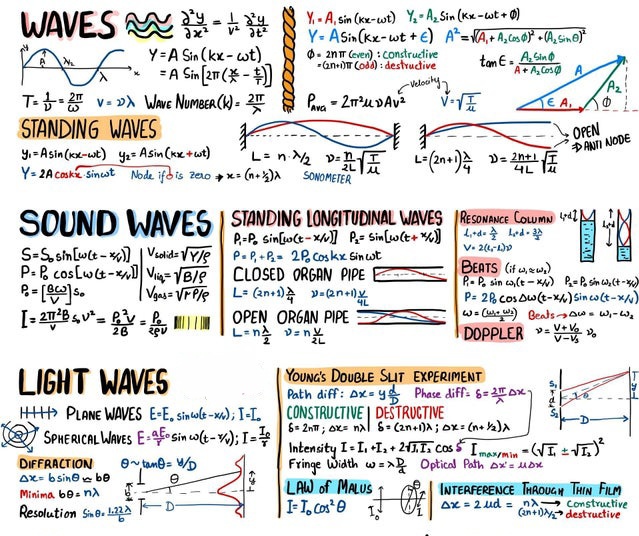 WAVES
∂²y/∂x² = 1/v² ∂²y/∂t²
y
A
λ/2
λ
x
Y = A Sin (kx - ωt)
= A Sin [2π(x/λ - t/T)]
T = 1/ν = 2π/ω V = νλ WAVE NUMBER(k) = 2π/λ
Y₁ = A₁ sin(kx-ωt) Y₂ = A₂ sin(kx-ωt+ϕ)
Y = A Sin (kx-ωt + ϵ) A² = √(A₁+A₂cosϕ)²+(A₂sinϕ)²
ϕ = 2nπ (even) : constructive
= (2n+1)π (odd) : destructive
tan ϵ = A₂sinϕ/A+A₂cosϕ
velocity
Pavg = 2π²μνAv² V = √T/μ
A
A₂
ϵ A₁ ϕ
STANDING WAVES
y₁ = A sin(kx-ωt) y₂ = A sin(kx+ωt)
Y = 2A coskx sinωt Node if is zero → x = (n+½)λ
L = n·λ/2 ν = n/2L √T/μ
SONOMETER
L = (2n+1)λ/4 ν = 2n+1/4L √T/μ
OPEN
ANTI NODE
SOUND WAVES
S = S₀ sin[ω(t-x/v)]
P = P₀ cos[ω(t-x/v)]
P₀ = [Bω/V]S₀
Vsolid = √Y/ρ
Vliq = √B/ρ
Vgas = √rP/ρ
I = 2π²B/v S₀ν² = P₀²V/2B = P₀/2ρv
STANDING LONGITUDINAL WAVES
P₁ = P₀ sin[ω(t-x/v)] P₂ = sin[ω(t+x/v)]
P = P₁+P₂ = 2P₀ coskx sinωt
CLOSED ORGAN PIPE
L = (2n+1)λ/4 ν = (2n+1)V/4L
OPEN ORGAN PIPE
L = nλ/2 ν = nV/2L
RESONANCE COLUMN
l₁+d = λ/2 l₂+d = 3λ/4
V = 2(l₂-l₁)ν
l₁+d
l₂+d
BEATS (if ω₁≈ω₂)
P₁ = P₀ sinω₁(t-x/v) P₂ = P₀ sinω₂(t-x/v)
P = 2P₀ cosΔω(t-x/v) sinω(t-x/v)
ω = (ω₁+ω₂)/2 Beats → Δω = ω₁-ω₂
DOPPLER ν = V+V₀/V-Vs ν₀
LIGHT WAVES
PLANE WAVES E = E₀ sinω(t-x/v); I = I₀
SPHERICAL WAVES E = aE₀/r sinω(t-r/v); I = I₀/r
DIFFRACTION
Δx = b sinθ ≈ bθ
Minima bθ = nλ
Resolution sinθ = 1.22λ/b
θ ~ tanθ = y/D
b
θ
y
D
YOUNG'S DOUBLE SLIT EXPERIMENT
Path diff: Δx = y d/D Phase diff: δ = 2π/λ Δx
CONSTRUCTIVE | DESTRUCTIVE
δ = 2nπ; Δx = nλ | δ = (2n+1)π; Δx = (n+½)λ
Intensity I = I₁+I₂+2√I₁I₂ cosδ Imax/min = (√I₁ ± √I₂)²
Fringe Width ω = λD/d Optical Path Δx' = μΔx
S₁
d
S₂
θ
D
y
LAW OF MALUS
I = I₀ cos²θ
I₀
θ
I
INTERFERENCE THROUGH THIN FILM
Δx = 2μd = nλ → Constructive
(2n+1)λ/2 → destructive